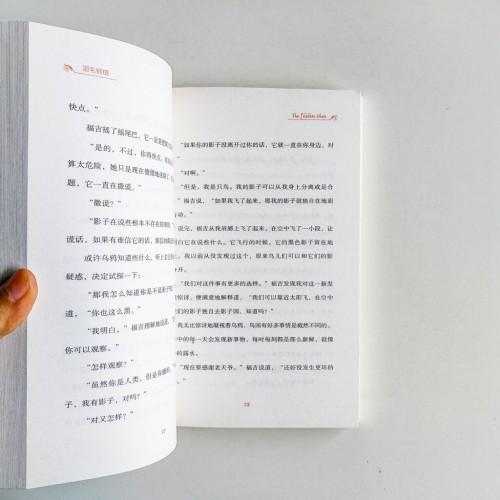 羽毛眼睛
快点。”
福吉摇了摇尾巴。它一定是
“是的，不过，你得快点，
算太危险，她只是现在
题，它一直在撒谎。”
“撒谎？”
“影子在说些根本不存在的事情，
谎话，如果有谁信它的话，
或许乌鸦知道些什么，听
疑惑，决定试探一下：
“那我怎么知道你是不是影子呢？
道，“你也这么黑。”
“我明白，”福吉理解地说道，
你可以观察。”
“怎样观察？”
“虽然你是人类，但是你
子，我有影子，对吗？”
“对又怎样？”
The Feather Chick
“如果你的影子没离开过你的话，它就一直在你身边，对
“对啊。”
“但是，我是只鸟。我的影子可以从我身上分离或是合
福吉说，“如果我飞了起来，那我的影子就独自在地面
动。”
说完，福吉从肩膀上飞了起来，在空中飞了一小段，让
白它在说些什么。它飞行的时候，它的黑色影子留在地
我以前从没发现过这个，原来鸟儿们可以和它们的影
开。
“我们对这件事有更多的选择。”福吉发现我对这一新发
惊讶，便满意地解释道，“我们可以靠近太阳飞，在空中
们的影子独自去影子国，知道吗？”
我无比惊讶地凝视着乌鸦，鸟国有好多事情是截然不同的。
中的每一天会发现新事物，每时每刻都是那么新鲜，就像
的露水。
“现在要感谢老天爷了。”福吉说道，“还好没发生更坏的
13